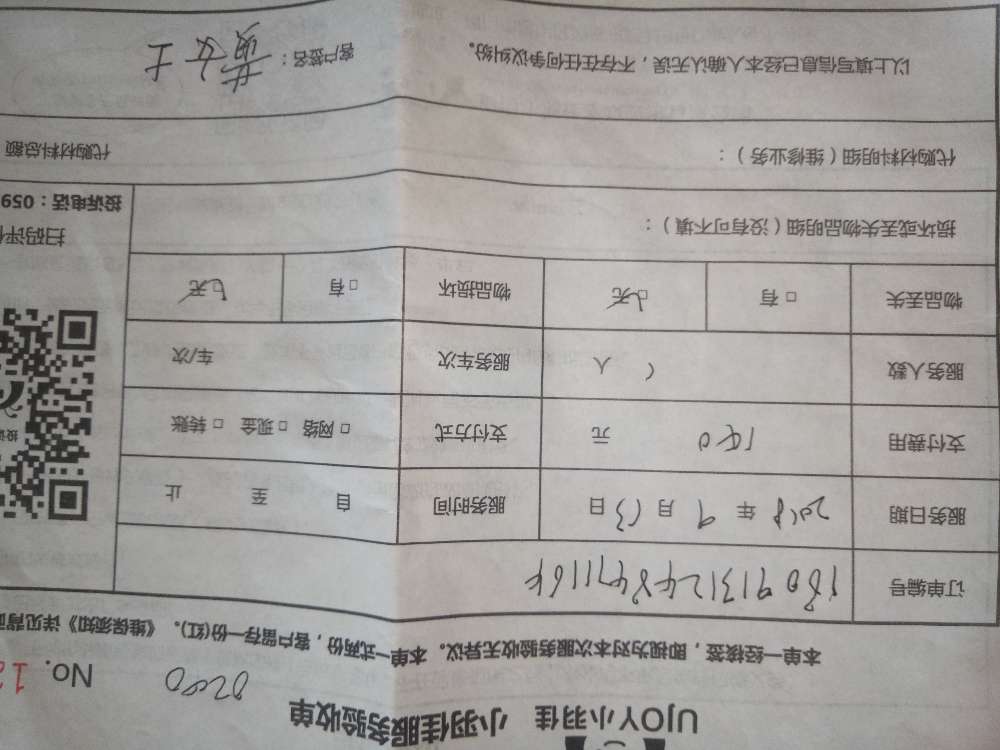 UJOY小羽佳 小羽佳服务验收单
0240 No. 1
本单一经接签，即视为对本次服务验收无异议。本单一式两份，客户留存一份(红)。《维保须知》详见背
订单编号
服务日期 2018 年 9 月 13 日 服务时间 自 至 止
支付费用 140 元 支付方式 □ 网络 □ 现金 □ 转账
服务人数 1 人 服务车次 车/次
物品丢失 □ 有 □ 无 物品损坏 □ 有 □ 无
损坏或丢失物品明细（没有可不填）：
扫码评
投诉电话：059
代购材料明细（维修业务）： 代购材料总额
以上填写信息已经本人确认无误，不存在任何争议纠纷。 客户签名： 女士